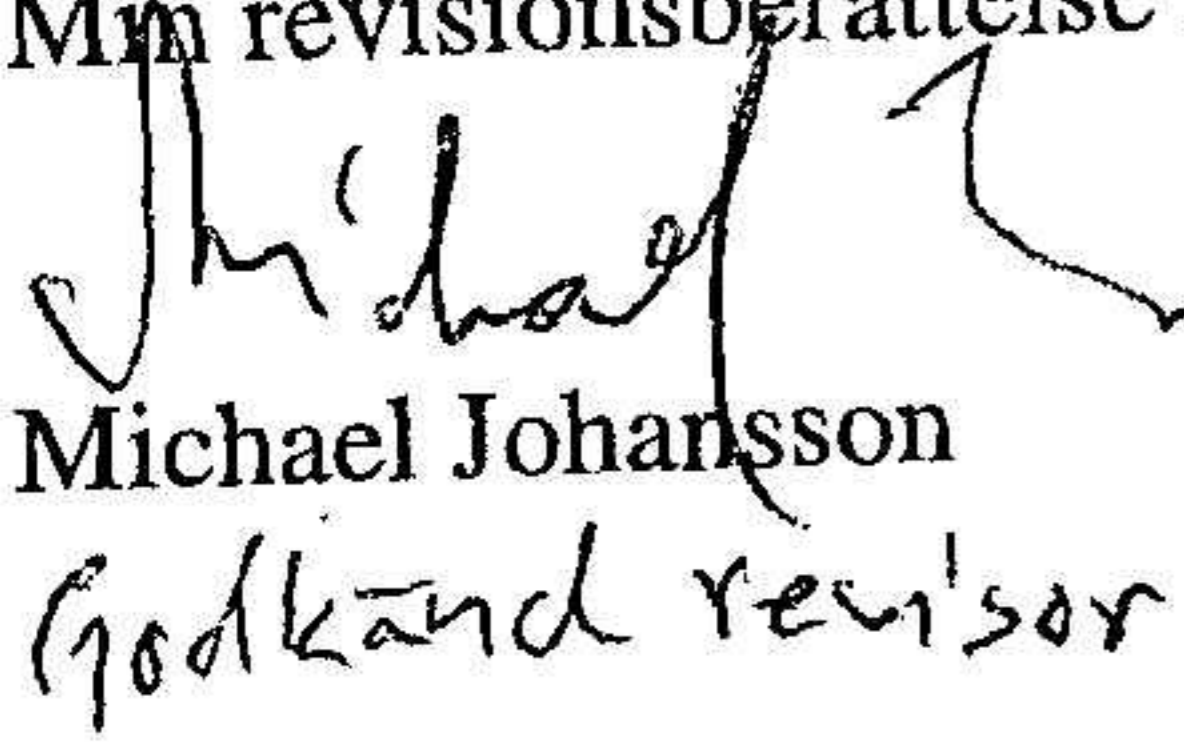 Min revisionsberättelse
Michael
Michael Johansson
Godkänd revisor